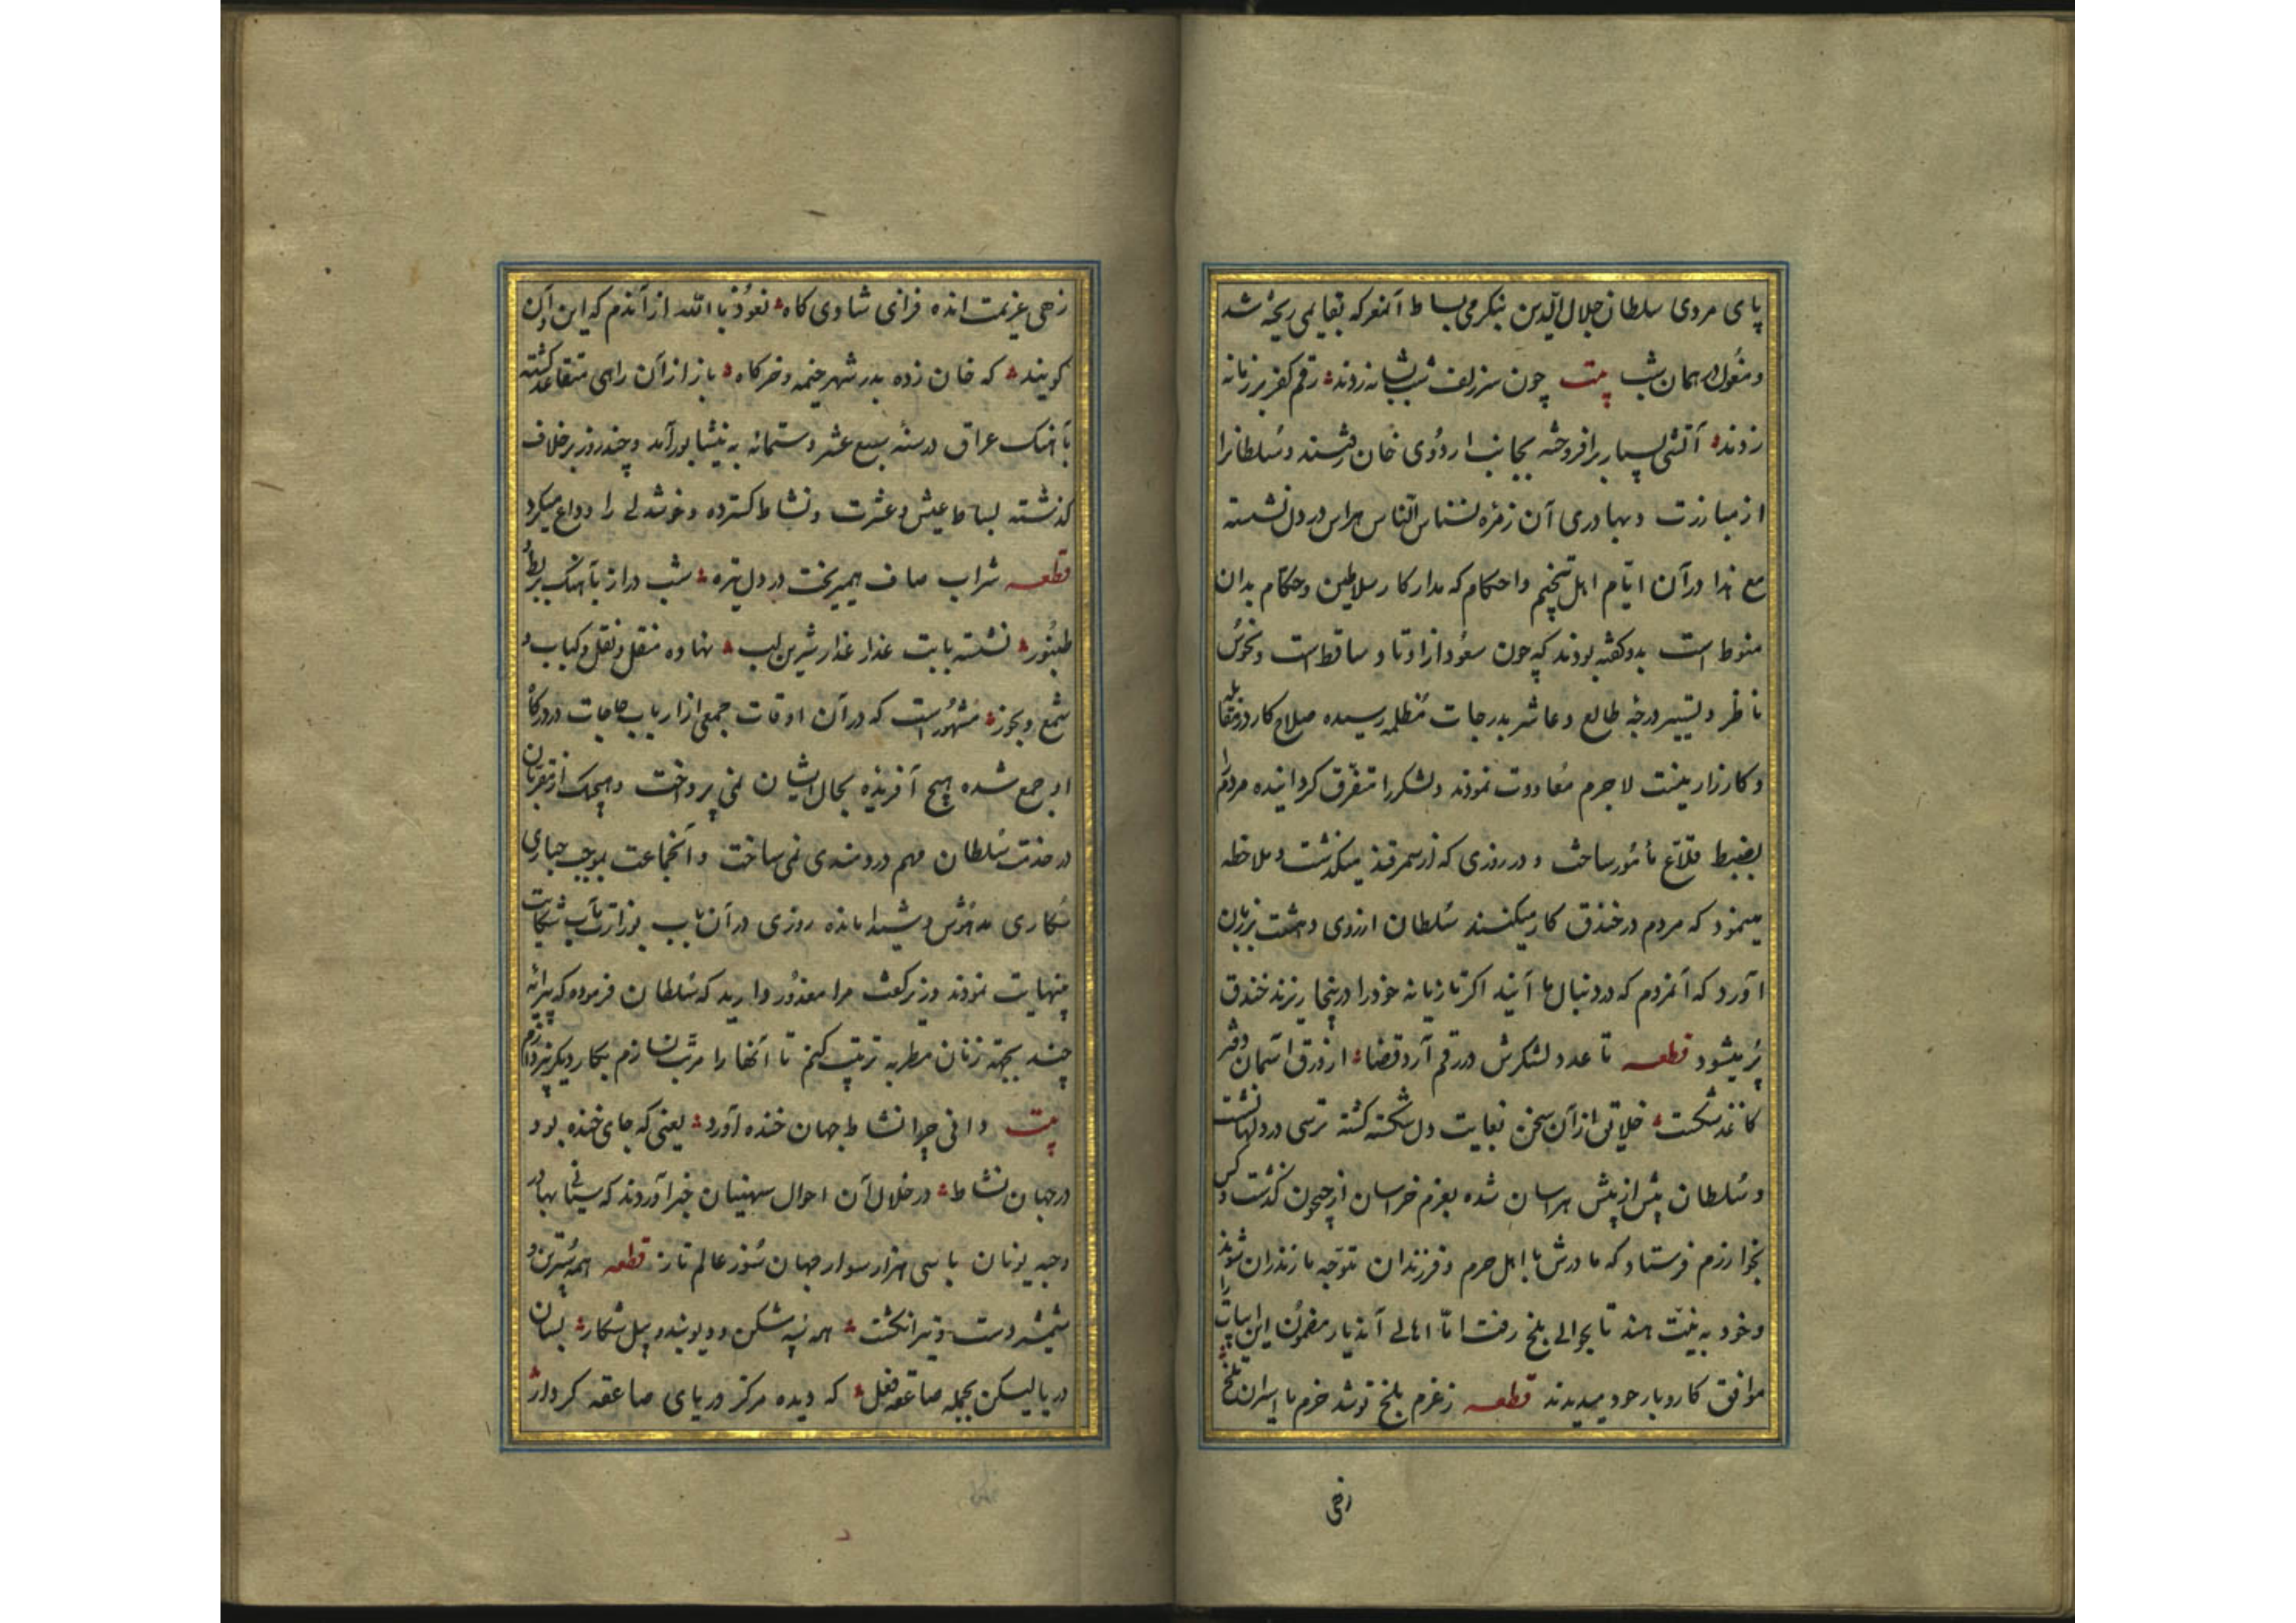 پای مردی سلطان جلال الدین بنکرمی بساط آنمعرکه بقایمی ریخته شد
ومغول در همان شب بیت چون سر زلف شب بشانه زدند رقم کفر بر زمانه
زدند آتشی بسیار برافروخته بجانب اردوی خان رفتند و سلطانرا
از مبارزت و بهادری آن زمره نسناس الناس هراس در دل نشسته
مع هذا در آن ایام اهل تنجیم و احکام که مدار کار سلاطین و حکام بدان
منوط است بدو گفته بودند که چون سعود از اوتاد ساقط است و نحوس
ناظر و تسییر درجهٔ طالع و عاشر بدرجات مظلمه رسیده صلاح کار در مقابله
و کارزار نیست لاجرم معاودت نموده و لشکر را متفرق کردانیده مردم را
بضبط قلاع مأمور ساخت و در روزی که از سمرقند میکذشت و ملاحظه
مینمود که مردم در خندق کار میکنند سلطان از روی دهشت بر زبان
آورد که آنمردم که در دنبال ما آیند اکر تازیانه خود را در اینجا ریزند خندق
پر میشود قطعه تا عدد لشکرش در رقم آرد قضا از ورق آسمان دفتر
کاغذ شکست خلایق از آن سخن بغایت دل شکسته کشته ترسی در دلها نشست
و سلطان بیش از پیش هراسان شده بعزم خراسان از جیحون کذشت و کس
بخوارزم فرستاد که مادرش با اهل حرم و فرزندان متوجه مازندران شوند
و خود به نیت هند تا بحوالی بلخ رفت اما اهالی آندیار مضمون این ابیات را
موافق کار و بار خود میدیدند قطعه ز عزم بلخ تو شد خرم با اسیران تلخ
زهی
زهی عزیمت انده فزای شادی کاه نعوذ بالله از آندم که این و آن
کویند که خان زده بدر شهر خیمه و خرکاه باز از آن راهی متقاعد کشته
بآهنک عراق در سنه سبع عشر و ستمائه به نیشابور آمد و چند روز بر خلاف
کذشته بساط عیش و عشرت و نشاط کسترده و خوشدلی را وداع میکرد
قطعه شراب صاف همیریخت در دل تیره شب دراز بآهنک بربط و
طنبور نشسته با بت عذار عذار شیرین لب نهاده منقل و نقل و کباب و
شمع و بخور مشهور است که در آن اوقات جمعی از ارباب حاجات در درکاه
او جمع شده هیچ آفریده بحال ایشان نمی پرداخت و هیچیک از مقربان
در خدمت سلطان مهم دردمندی نمی ساخت و آنجماعت بموجب
سکاری مدهوش و شیدا مانده روزی در آن باب بوزارت مآب شکایت
بینهایت نمودند وزیر کفت مرا معذور دارید که سلطان فرموده که پیرایهٔ
چند بجهته زنان مطربه ترتیب کنم تا آنها را مرتب نسازم بکار دیکر نپردازم
بیت دانی چرا نشاط جهان خنده آورد یعنی که جای خنده بود
در جهان نشاط در خلال آن احوال منهیان خبر آوردند که بهادر
و جبه نویان با سی هزار سوار جهان سوز عالم تاز قطعه همه و
شمشیر دست و تیر انکشت همه شکن و دیو بند و پیل شکار بسان
دریا لیکن بحمله صاعقه فعل که دیده مرکز دریای صاعقه کردار